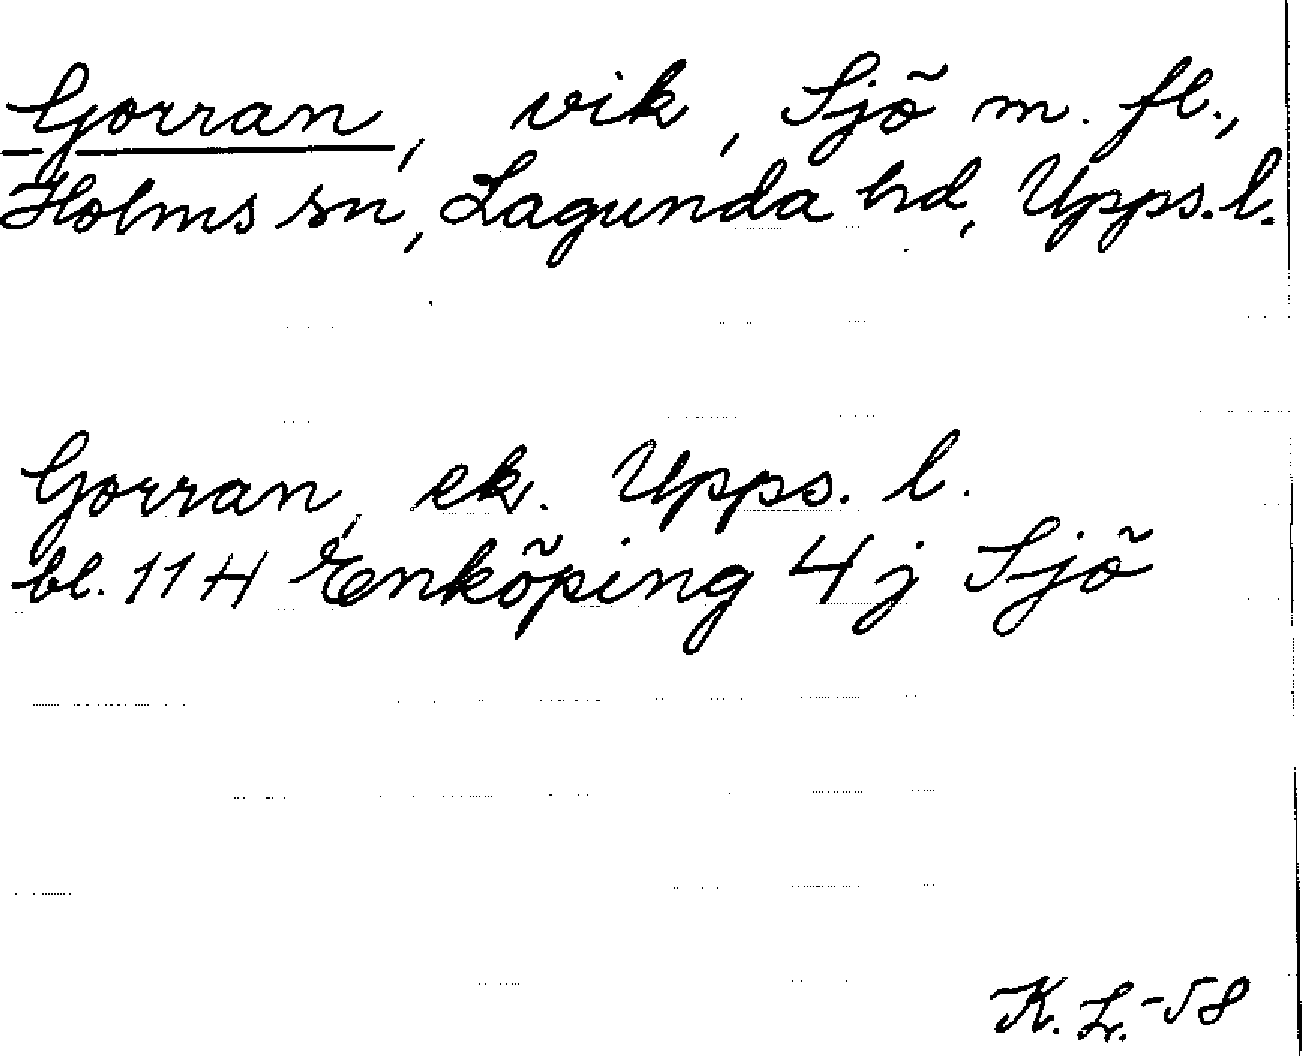 Gorran, vik, Sjö m. fl.,
Holms sn, Lagunda hd, Upps. l.
Gorran, ek. Upps. l.
bl. 11 H Enköping 4 j Sjö
K. L. -58